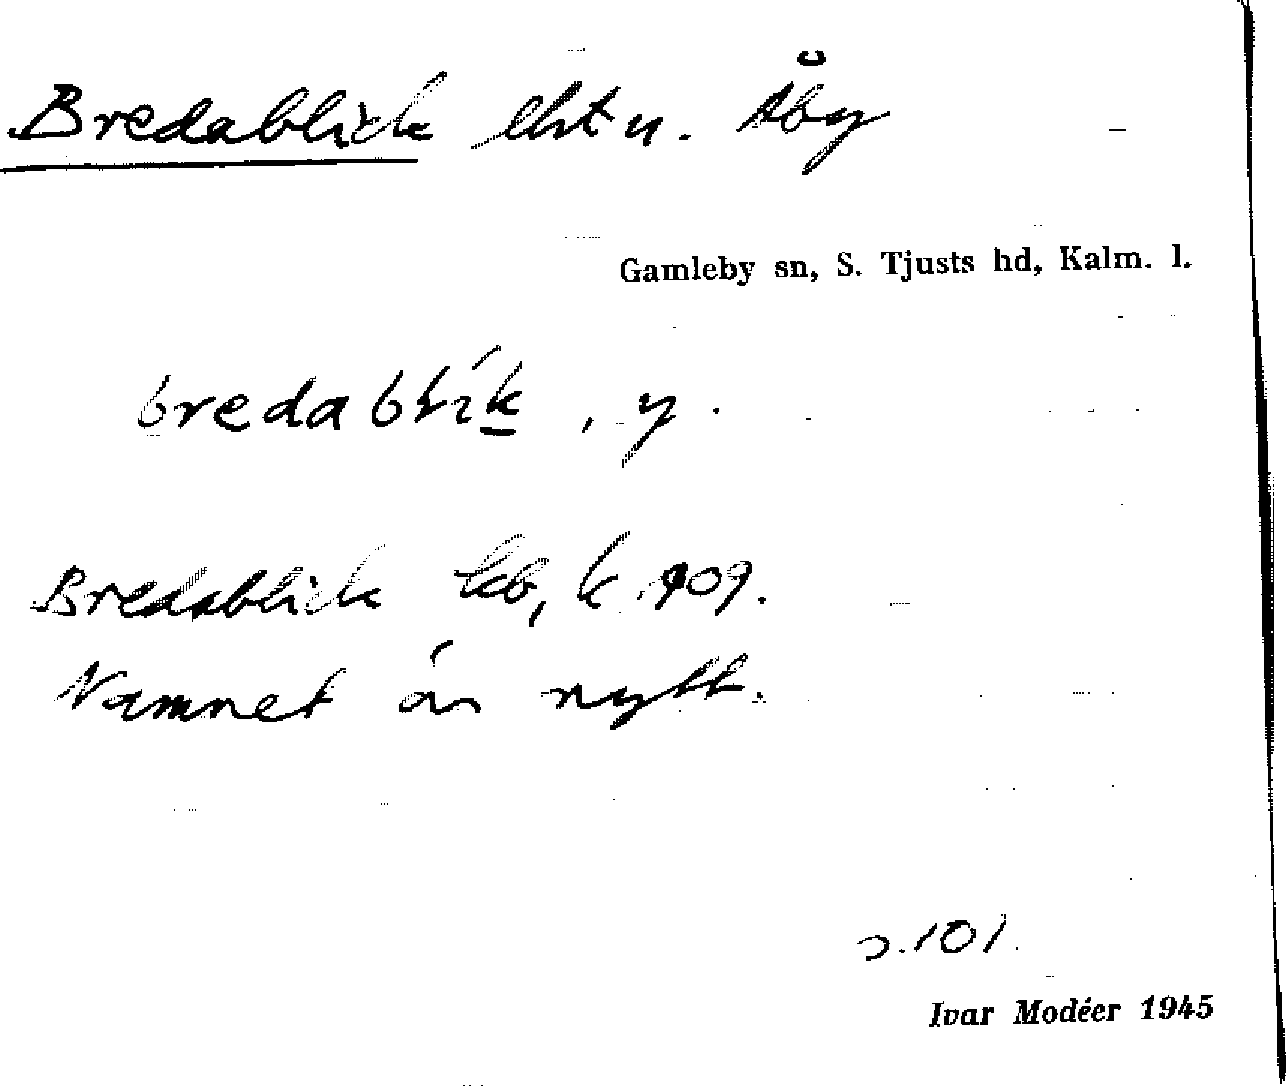 Bredablick lht u. Åby
Gamleby sn, S. Tjusts hd, Kalm. l.
bredablík, y.
Bredablick kb, k 909.
Namnet är nytt.
s. 101.
Ivar Modéer 1945